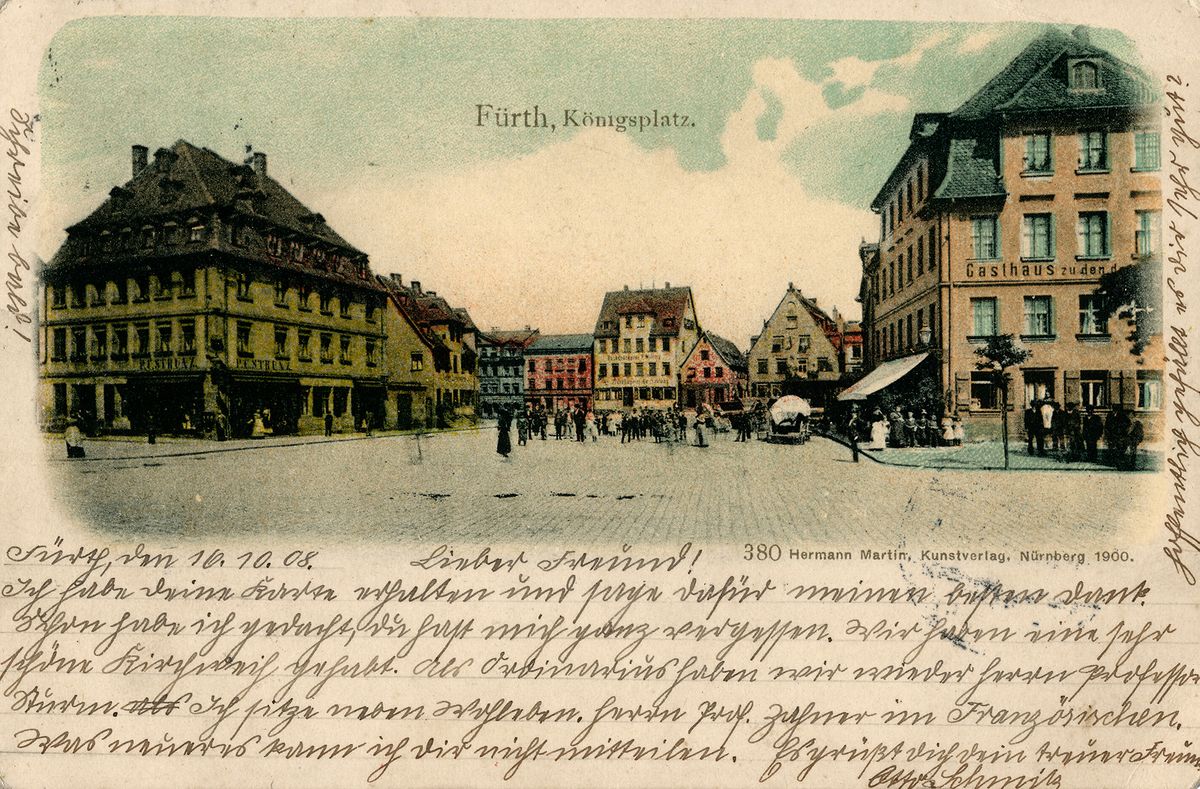 Fürth, Königsplatz.
Gasthaus zu den d
380 Hermann Martin, Kunstverlag, Nürnberg 1900.
Fürth, den 16.10.08. Lieber Freund!
Ich habe deine Karte erhalten und sage dafür meinen besten Dank.
Schon habe ich gedacht, du hast mich ganz vergessen. Wir haben eine sehr
schöne Kirchweih gehabt. Als Ordinarius haben wir wieder Herrn Professor
Sturm. als Ich sitze neben Wohleben. Herrn Prof. Zahner im Französischen.
Was neueres kann ich dir nicht mitteilen. Es grüßt dich dein treuer Freund
Otto Schmitz
Schreibe bald!